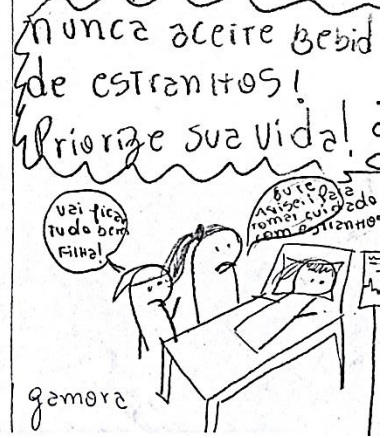 nunca aceite bebid
de estranhos!
Priorize sua vida!
vai ficar
tudo bem
Filha!
Eu te
avisei para
tomar cuidado
com estranhos
gamora